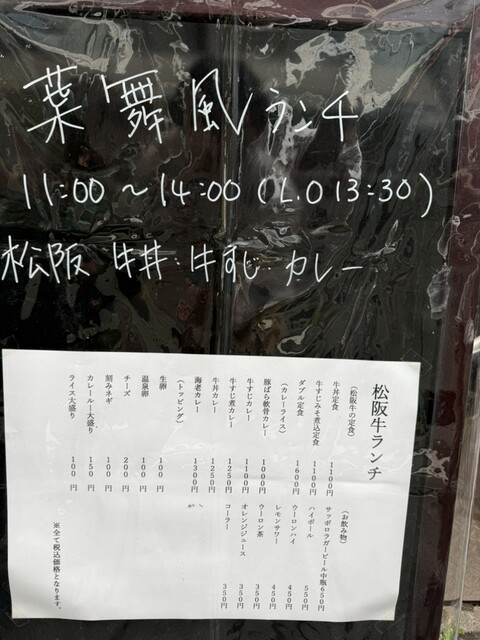 葉舞風ランチ
11:00～14:00(L.O 13:30)
松阪 牛丼 牛すじ カレー
松阪牛ランチ
(松阪牛の定食)
牛丼定食 1100円
牛すじみそ煮込定食 1100円
ダブル定食 1600円
(カレーライス)
豚ばら軟骨カレー 1000円
牛すじカレー 1100円
牛すじ煮カレー 1250円
牛丼カレー 1250円
海老カレー 1300円
(トッピング)
生卵 100円
温泉卵 100円
チーズ 200円
刻みネギ 100円
カレールー大盛り 150円
ライス大盛り 100円
(お飲み物)
サッポロラガービール中瓶 650円
ハイボール 550円
ウーロンハイ 450円
レモンサワー 450円
ウーロン茶 350円
オレンジジュース 350円
コーラー 350円
※全て税込価格となります。